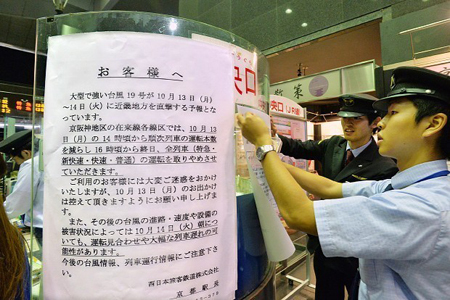 お客様へ
大型で強い台風19号が10月13日(月)
~14日(火)に近畿地方を直撃する予報とな
っています。
京阪神地区の在来線各線区では、10月13
日の14時頃から順次列車の運転本数
を減らし16時から終日、全列車(特急・
新快速・快速・普通)の運転を取りやめさせ
ていただきます。
ご利用のお客様には大変ご迷惑をおかけ
いたしますが、10月13日(月)のお出かけ
は控えて頂きますようにお願い申し上げま
す。
また、その後の台風の進路・速度や設備の
被害状況によっては10月14日(火)朝につい
ても、運転見合わせや大幅な列車遅れの可
能性があります。
今後の台風情報、列車運行情報にご注意下さ
い。
西日本旅客鉄道株式会社
京都駅長
央口
央口